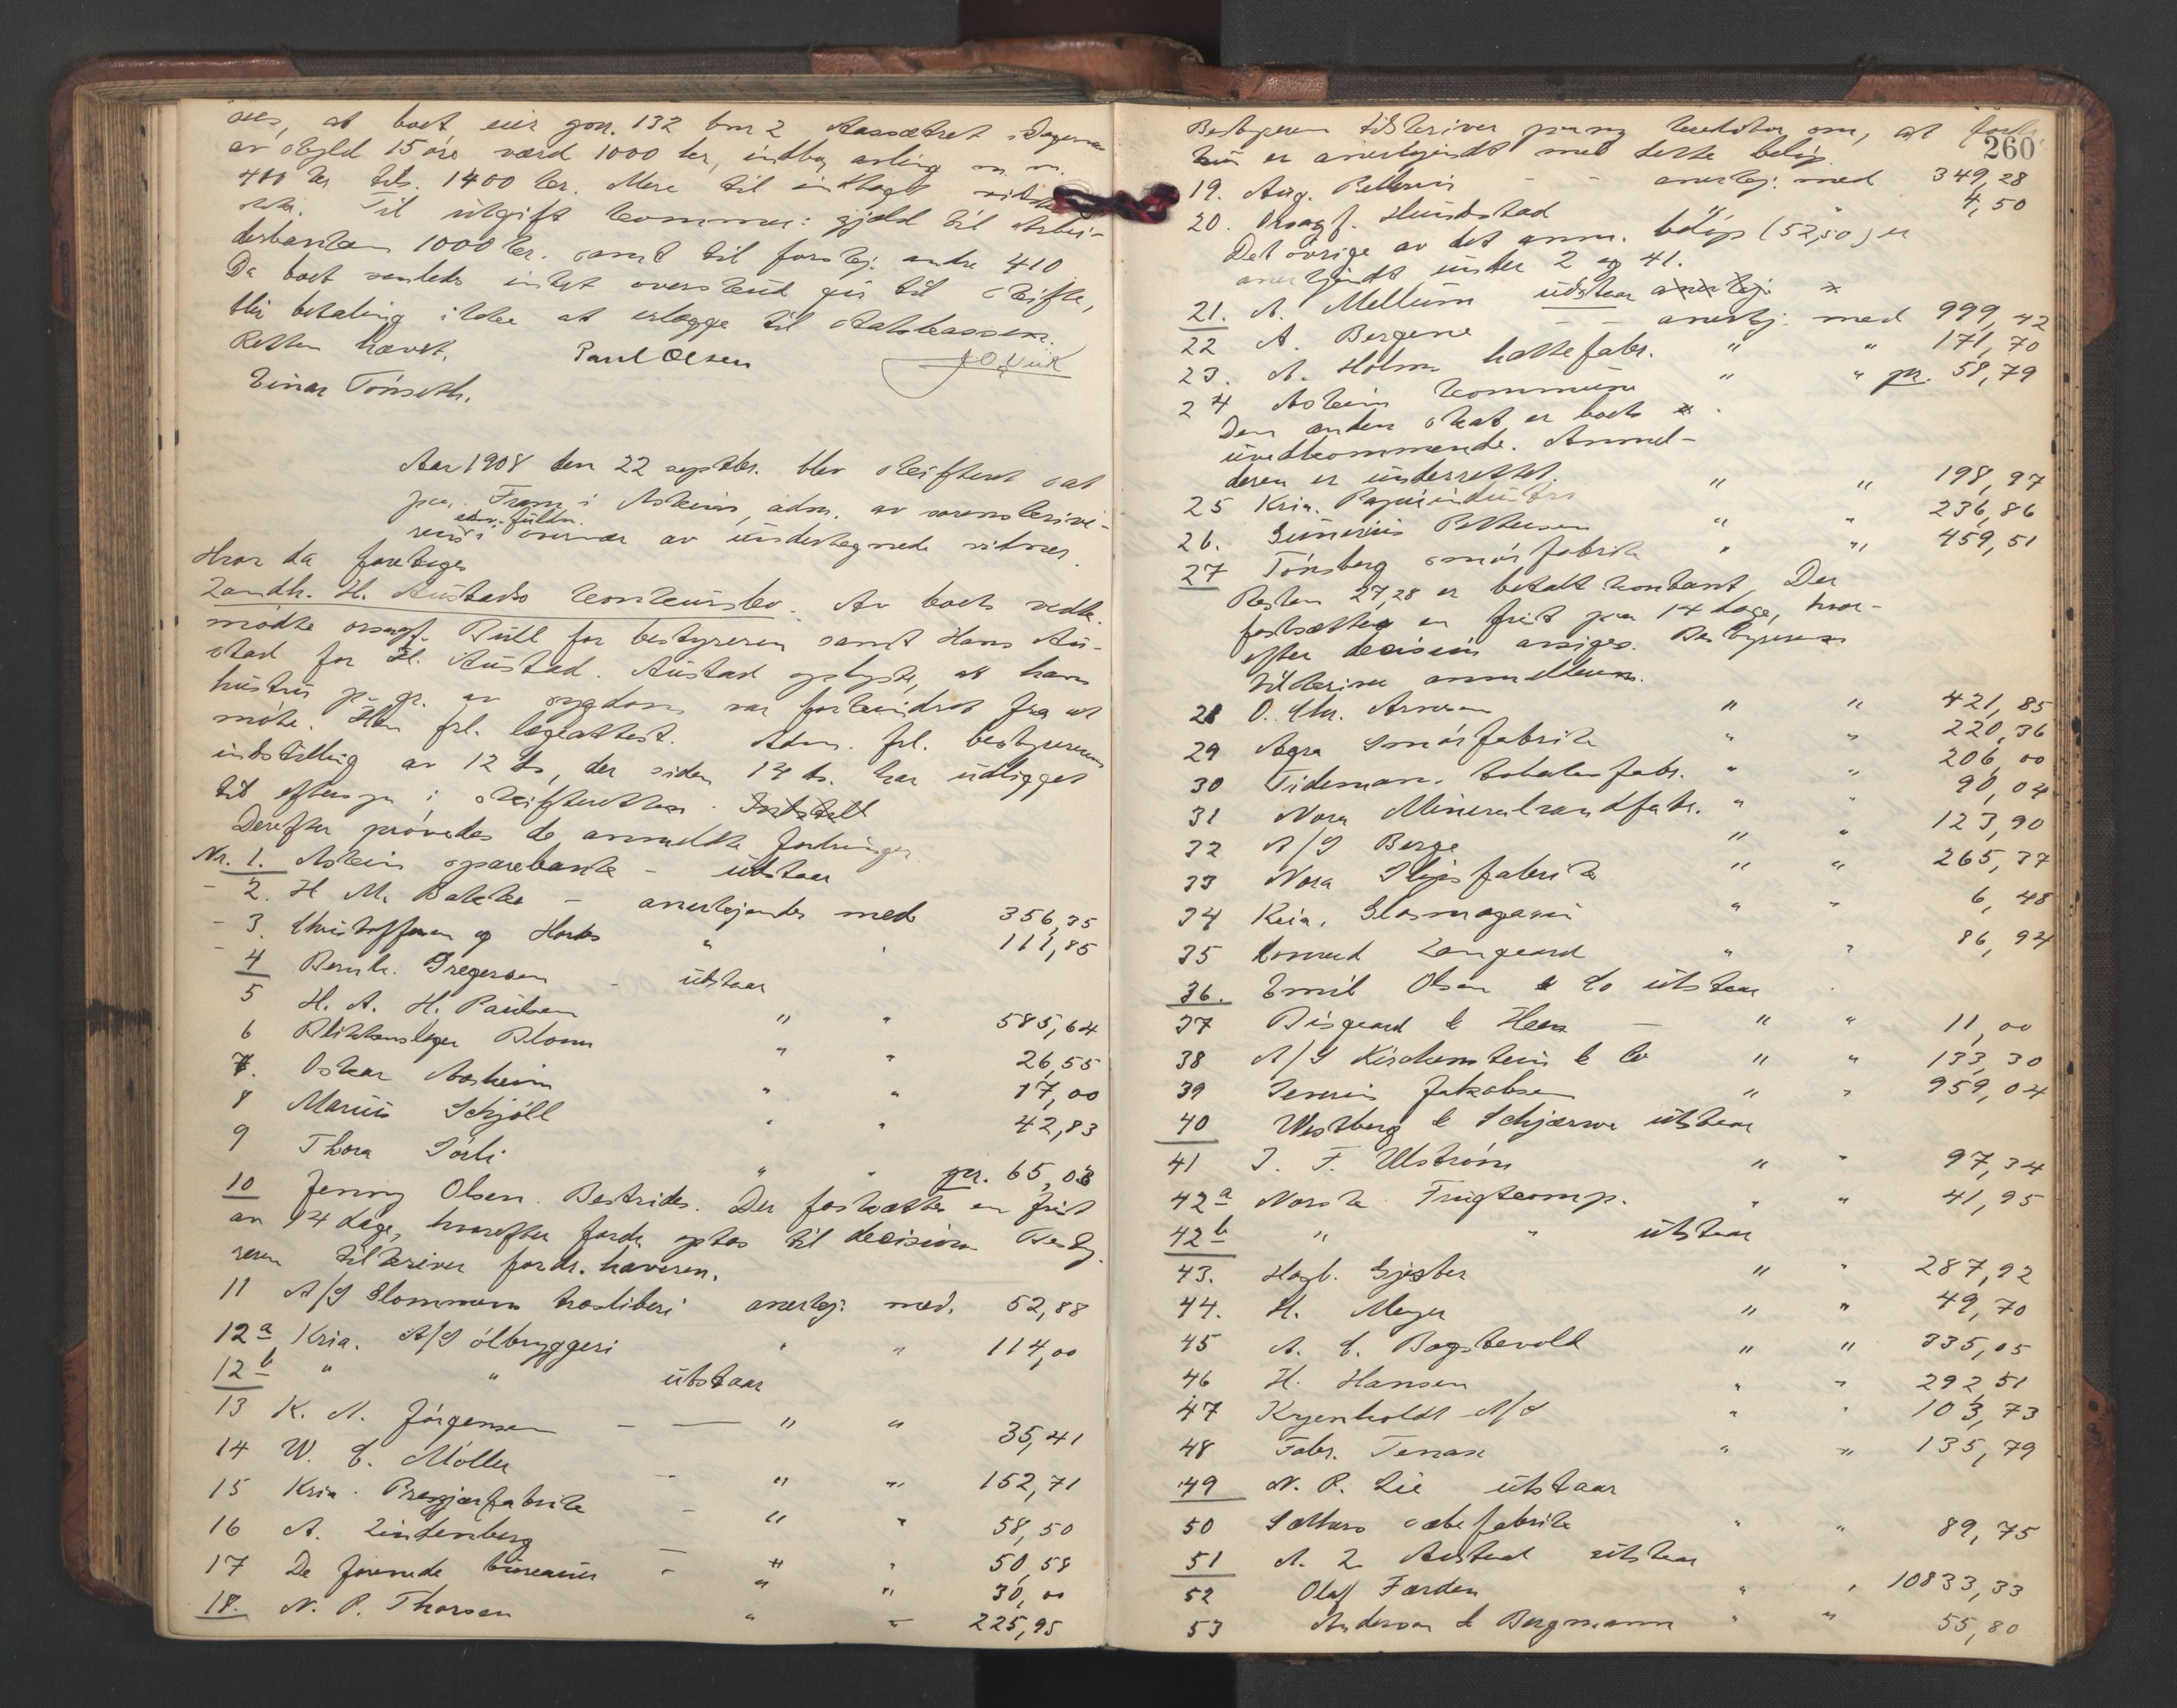 sees, at boet eier gnr. 132 bnr 2
av skyld 15 øre værd 1000 kr, indbo, avling m. m.
400 kr tils. 1400 kr. Mere til indtægt
Til utgift kommer: gjæld til Arbei-
derbanken 1000 kr. samt til forskj. andre 410
Da boet saaledes intet overskud gir til skifte,
blir betaling ikke at erlægge til statskassen.
Retten hævet.
Paul Olsen
Einar Tönseth.
Aar 1908 den 22 septbr. blev skifteret sat
paa Fram i Askim, adm. av sorenskrive-
ren i overvær av undertegnede vitner.
Hvor da foretoges
Landh. H. Austads konkursbo. Av boets vedk.
mødte ovsagf. Bull for bestyreren samt Hans Au-
stad for H. Austad. Austad oplyste, at hans
hustru p. gr. av sygdom var forhindret fra at
møte. Han frl. lægeattest. Adm. frl. bestyrerens
indstilling av 12 ds, der siden 14 ds. har utligget
til eftersyn i skifteretten.
Derefter prövedes de anmeldte fordringer.
Nr. 1. Askim sparebank - utstaar
- 2. H M. Bakke - anerkjendes med 356,35
- 3. Christoffersen og Horbs " " 111,85
4 Bernh. Gregersen - utstaar
5 H. A. H. Paulsen " " 585,64
6 Blikkenslager Blom " " 26,55
7. Oskar Aasheim " " 17,00
8 Marius Schjöll " " 42,83
9 Thora Sörli " " pr. 65,03
10 Jenny Olsen. Bestrides. Der fastsættes en frist
av 14 dage, hvorefter fordr. optas til decision Besty-
reren tilskriver fordr. haveren.
11 A/S Glommens træsliberi anerkj. med. 52,88
12a Kria. A/S ölbryggeri " " 114,00
12b " " utstaar
13 K. A. Jörgensen - — " " 35,41
14 W. C. Möller - " " 152,71
15 Kria. Presgjærfabrik - " " 58,50
16 A. Lindenberg - " " 50,58
17 De forenede bureauer - " " 30,00
18. N. P. Thorsen " " 225,95
260
Bestyreren tilskriver paany kreditor om, at fordr.
er anerkjendt med dette beløp.
19. Aug. Pellerin - - anerkj. med 349,28
20. Ovsagf. Hundstad " " 4,50
Det övrige av det anm. beløp (52,50) er
anerkjendt under 2 og 41.
21. A. Mellum utstaar
22 A. Bergene - - anerkj. med 999,42
23. A. Holms hattefabr. " " 171,70
24 Askim kommune " " pr. 58,79
Den anden skat er boets
uvedkommende. Anmel-
deren er underrettet.
25 Kria. Papirindustri " " 198,97
26. Gunerius Pettersen " " 236,86
27 Tönsberg smörfabrik " " 459,51
Resten 27,28 er betalt kontant. Der
fastsættes en frist paa 14 dage, hvor-
efter decision avsiges. Bestyreren
tilskriver anmelderen.
28 O. Chr. Arnesen " " 421,85
29 Agra Smörfabrik " " 220,36
30 Tideman. tobaksfabr. " " 206,00
31 Nora Mineralvandfabr. " " 90,04
32 A/S Borge " " 123,90
33 Nora Slipsfabrik " " 265,37
34 Kria. Glasmagasin " " 6,48
35 Konrad Langaard " " 86,94
36. Emil Olsen & Co utstaar
37 Bisgaard & Heen - " " 11,00
38 A/S Kirchenstein & Co " " 133,30
39 Severin Jakobsen " " 959,04
40 Westberg & Schjærve utstaar
41 J. F. Ulström " " 97,34
42a Norsk Frugtcomp. " " 41,95
42b " " utstaar
43. Hagb. Gjester " " 287,92
44. H. Meyer " " 49,70
45 A. C. Bogstevold " " 335,05
46 H. Hansen " " 292,51
47 Kyenholdt A/S " " 103,73
48 Fabr. Tenax " " 135,79
49 N. P. Lie utstaar
50 Sætters sæbefabrik " " 89,75
51 A. L. Austad utstaar
52 Olaf Færden " " 10833,33
53 Andersen & Bergmann " " 55,80